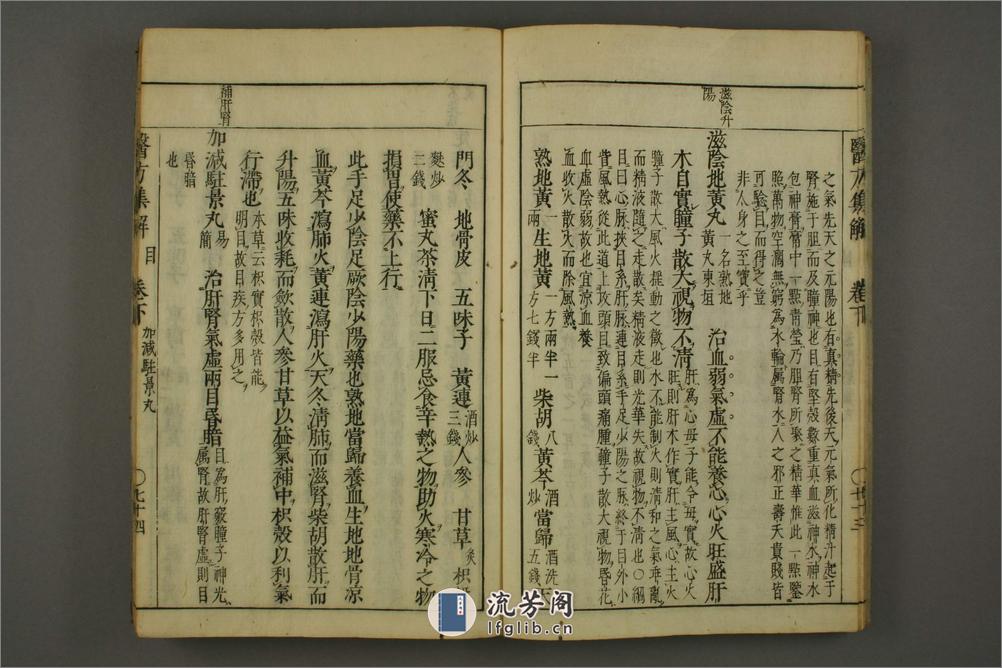 醫方集解 卷下 七十三
之氣先天之元陽也有真精先後天元氣所化精汁起于
腎施于胆而及瞳神也目有堅殼數重真血滋神水神水
包神膏膏中一點青瑩乃胆腎所聚之精華惟此一點鑒
照萬物空濶無窮為水輪属腎水人之邪正壽夭貴賤皆
可驗目而得之豈
非人身之至寶乎
滋陰升
陽
滋陰地黃丸 一名熟地
黃丸東垣 治血弱氣虛不能養心心火旺盛肝
木自實瞳子散大視物不清 肝為心母子能令母實故心火
旺則肝木作實肝主風心主火
瞳子散大風火搖動之徵也水不能制火則清和之氣乖亂
而精液隨之走散矣精液走則光華失故視物不清也〇綱
目曰心脈挾目系肝脈連目系手足少陽之脈終于目外小
眥風熱從此道上攻頭目致偏頭痛腫瞳子散大視物昏花
血虛陰弱故也宜涼血養
血收火散大而除風熱
熟地黃 一
兩 生地黃 一方兩半一
方七錢半 柴胡 八
錢 黃芩 酒
炒 當歸 酒洗
五錢
門冬 地骨皮 五味子 黃連 酒炒
三錢 人參 甘草 炙 枳
麩炒
二錢 蜜丸茶清下日二服忌食辛熱之物助火寒冷之物
損胃使藥不上行
此手足少陰足厥陰少陽藥也熟地當歸養血生地地骨凉
血黃芩瀉肺火黃連瀉肝火天冬清肺而滋腎柴胡散肝而
升陽五味收耗而歛散人參甘草以益氣補中枳殼以利氣
行滯也 本草云枳實枳殼皆能
明目故目疾方多用之
補肝腎
加減駐景丸 易
簡 治肝腎氣虛兩目昏暗 目為肝竅瞳子神光
属腎故肝腎虛則目
昏暗
也
醫方集解 目 卷下 加減駐景丸 〇七十四
流芳阁
lfglib.cn